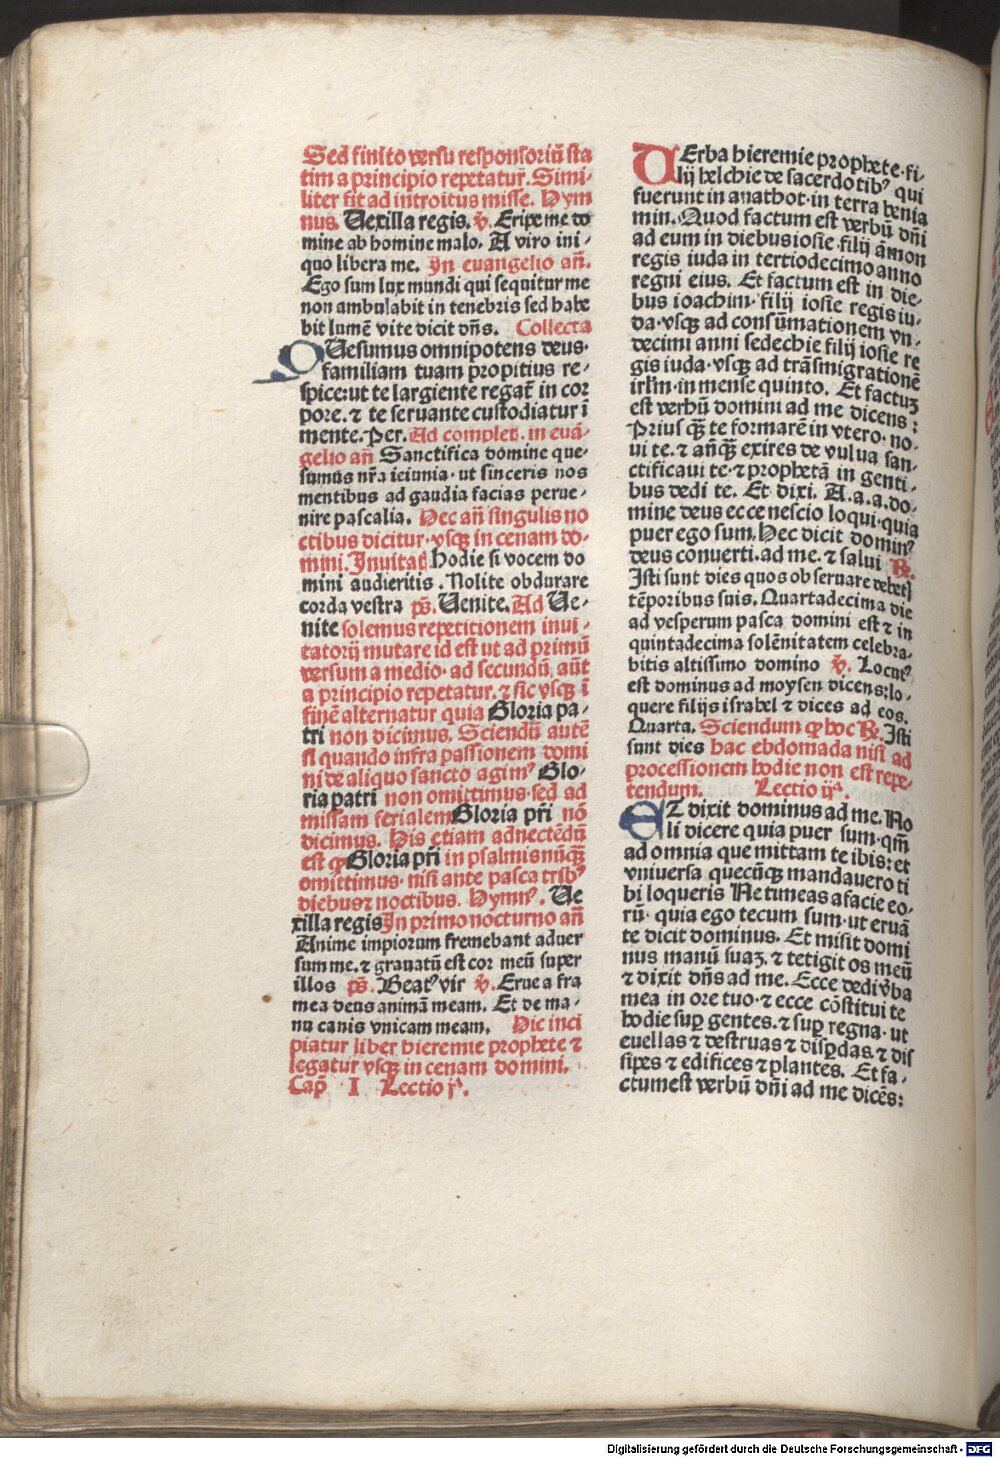 Sed finito versu responsoriū sta
tim a principio repetatur̄. Simi-
liter fit ad introitus misse. Hym
nus. Vexilla regis. ℣. Eripe me do
mine ab homine malo. A viro ini-
quo libera me. In euangelio an̄.
Ego sum lux mundi qui sequitur me
non ambulabit in tenebris sed habe
bit lumē vite dicit dn̄s. Collecta
QVesumus omnipotens deus·
familiam tuam propitius re-
spice: ut te largiente regat̄ in cor
pore. ⁊ te seruante custodiatur ī
mente. Per. Ad complet. in euā-
gelio an̄ Sanctifica domine que-
sumus nr̄a ieiunia· ut sinceris nos
mentibus ad gaudia facias perue-
nire pascalia. Hec an̄ singulis no
ctibus dicitur· vsqꝫ in cenam do-
mini. Inuitat̄ Hodie si vocem do
mini audieritis. Nolite obdurare
corda vestra ps̄. Venite. Ad Ve-
nite solemus repetitionem inui-
tatorij mutare id est ut ad primū
versum a medio· ad secundū, aūt
a principio repetatur. ⁊ sic vsqꝫ ī
finē alternatur quia Gloria pa-
tri non dicimus. Sciendū autē
si quando infra passionem domi
ni de aliquo sancto agimꝰ Glo-
ria patri non omittimus· sed ad
missam ferialem Gloria pr̄i nō
dicimus. His etiam adnectēdū
est ꝙ Gloria pr̄i in psalmis nūqꝫ
omittimus· nisi ante pasca trib̄ꝰ
diebus ⁊ noctibus. Hymnꝰ. Ve
xilla regis In primo nocturno an̄
Anime impiorum fremebant aduer
sum me. ⁊ grauatū est cor meū super
illos ps̄. Beatꝰ vir ℣. Erue a fra
mea deus animā meam. Et de ma-
nu canis vnicam meam. Hic inci
piatur liber Hieremie prophete ⁊
legatur vsqꝫ in cenam domini.
Cap̄ I Lectio jᵃ.
VErba hieremie prophete· fi-
lij helchie de sacerdotibꝰ qui
fuerunt in anathot· in terra benia
min. Quod factum est verbū dn̄i
ad eum in diebus iosie filij āmon
regis iuda in tertiodecimo anno
regni eius. Et factum est in die-
bus ioachim· filij iosie regis iu-
da· vsqꝫ ad consūmationem vn-
decimi anni sedechie filij iosie re
gis iuda· vsqꝫ ad trāsmigrationē
irl̄m· in mense quinto. Et factuꝫ
est verbū domini ad me dicens:
Priusqꝫ te formarē in vtero· no-
ui te. ⁊ an̄qꝫ exires de vulua san-
ctificaui te· ⁊ prophetā in genti-
bus dedi te. Et dixi. A.a.a. do-
mine deus ecce nescio loqui· quia
puer ego sum. Hec dicit dominꝰ
deus conuerti. ad me. ⁊ salui ℟.
Isti sunt dies quos obseruare debetꝭ
tēporibus suis. Quartadecima die
ad vesperum pasca domini est ⁊ in
quintadecima solēnitatem celebra-
bitis altissimo domino ℣. Locutꝰ
est dominus ad moysen dicens: lo-
quere filijs israbel ⁊ dices ad eos.
Quarta. Sciendum ꝙ hoc ℟. Isti
sunt dies hac ebdomada nisi ad
processionem hodie non est repe-
tendum. Lectio ijᵃ.
ET dixit dominus ad me. No
li dicere quia puer sum· qm̄
ad omnia que mittam te ibis: et
vniuersa quecūqꝫ mandauero ti
bi loqueris Ne timeas a facie eo-
rū· quia ego tecum sum· ut eruā
te dicit dominus. Et misit domi
nus manū suaꝫ. ⁊ tetigit os meū
⁊ dixit dn̄s ad me. Ecce dedi v̄ba
mea in ore tuo· ⁊ ecce cōstitui te
hodie sup̄ gentes. ⁊ sup̄ regna· ut
euellas ⁊ destruas ⁊ disp̄das. ⁊ dis
sipes ⁊ edifices ⁊ plantes. Et fa-
ctum est verbū dn̄i ad me dicēs:
Digitalisierung gefördert durch die Deutsche Forschungsgemeinschaft - DFG